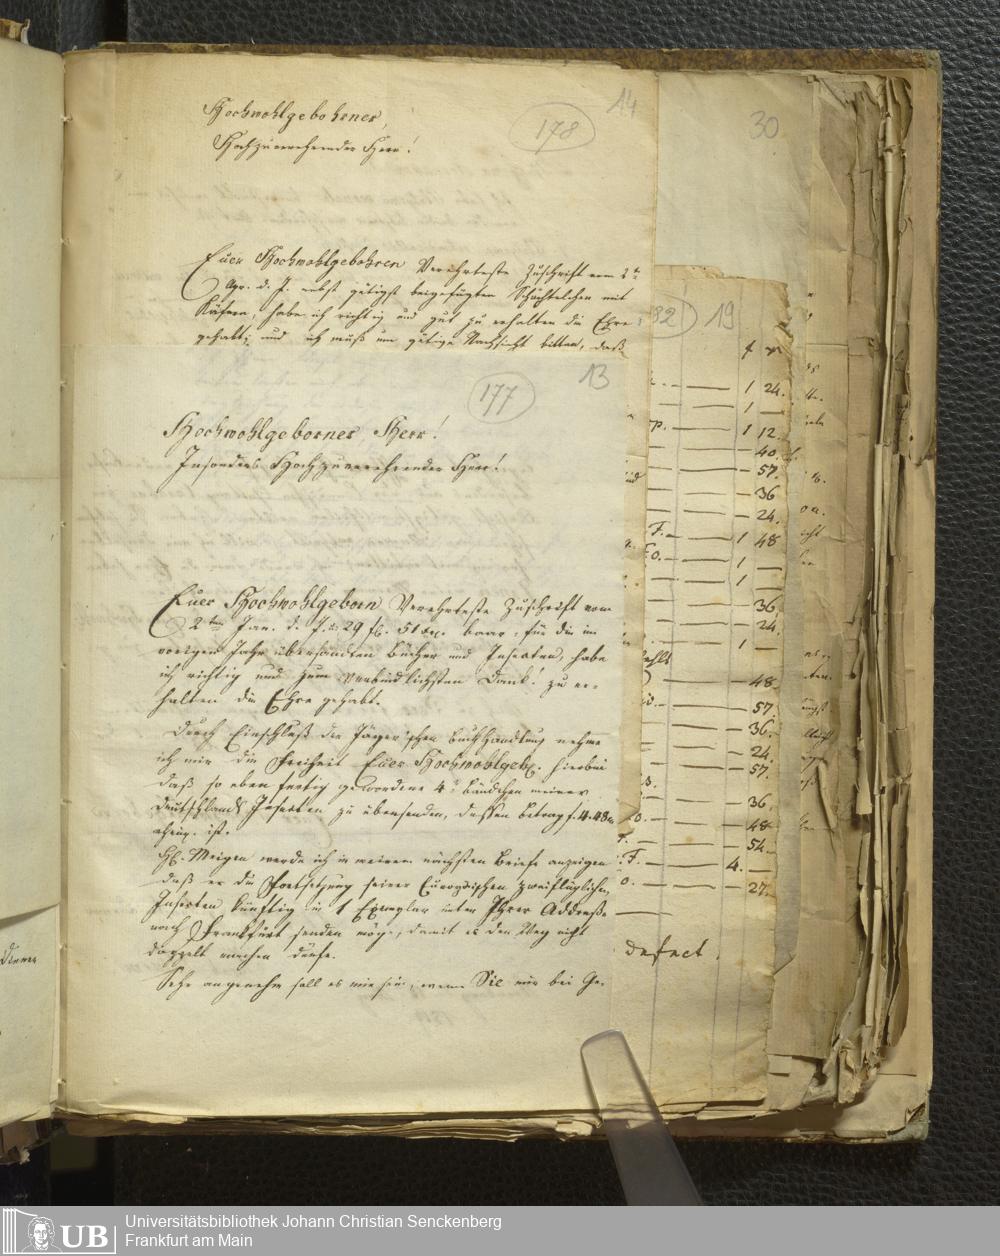 14
178
Hochwohlgebohrner,
Hochzuverehrender Herr!
Euer Hochwohlgebohren Verehrteste Zuschrift vom 2ten
Apr. d. J. nebst gütigst beigefügten Schächtelchen mit
Käfern, habe ich richtig und gut zu erhalten die Ehre
gehabt; und ich muß um gütige Nachsicht bitten, daß
13
177
Hochwohlgeborner Herr!
Insonders Hochzuverehrender Herr!
Euer Hochwohlgeborn Verehrteste Zuschrift vom
2ten Jan. d. J. 29 fl. 51 baar, für die im
vorigen Jahr übersandten Bücher und Insecten, habe
ich richtig und zum verbindlichsten Dank! zu er-
halten die Ehre gehabt.
Durch Einschluß der Jäger'schen Buchhandlung nehme
ich mir die Freiheit Euer Hochwohlgeb. hierbei
das so eben fertig gewordene 4te Bändchen meiner
Deutschlands Insecten zu übersenden, dessen Betrag f. 4.48
ist.
H. Meigen werde ich in meinem nächsten Briefe anzeigen
daß er die Fortsetzung seiner Europäischen zweiflügelichen
Insecten künftig in 1 Exemplar unter Ihrer Addresse
nach Frankfurt senden möge, damit es den Weg nicht
doppelt machen dürfe.
Sehr angenehm soll es mir sein, wenn Sie mir bei Ge-
30
82
19
1 24.
1 —
1 12.
40.
57.
36
24.
1 48
1 —
1 —
36
24.
1 —
48.
57.
36.
24.
57.
36.
48
54.
4. —
27.
defect.
UB
Universitätsbibliothek Johann Christian Senckenberg
Frankfurt am Main